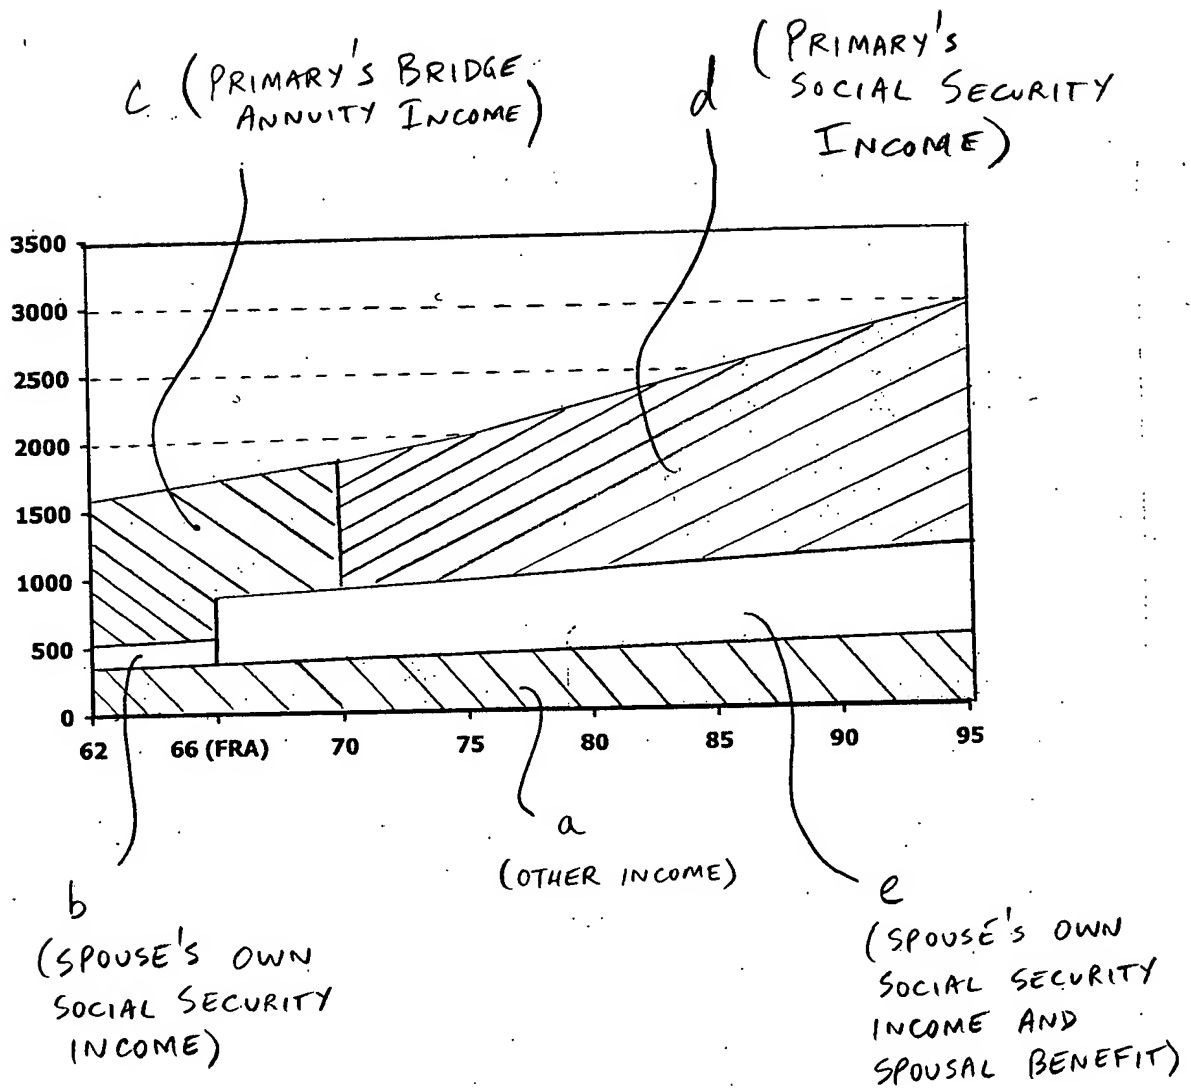 c (PRIMARY'S BRIDGE
ANNUITY INCOME)
d (PRIMARY'S
SOCIAL SECURITY
INCOME)
3500
3000
2500
2000
1500
1000
500
0
62 66 (FRA) 70 75 80 85 90 95
a
(OTHER INCOME)
b
(SPOUSE'S OWN
SOCIAL SECURITY
INCOME)
e
(SPOUSE'S OWN
SOCIAL SECURITY
INCOME AND
SPOUSAL BENEFIT)